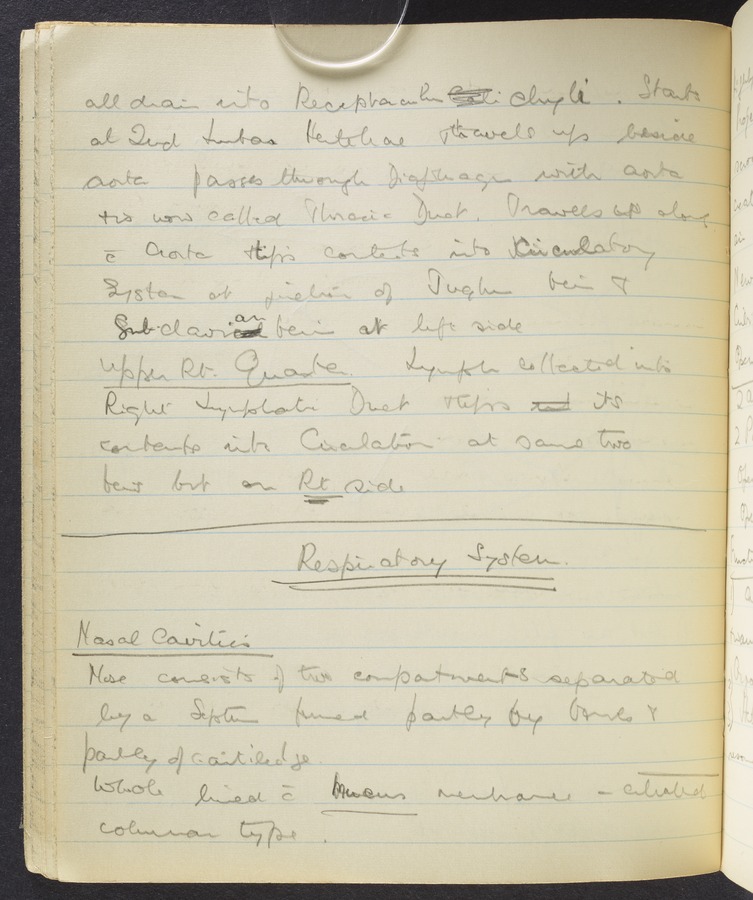 all drain into Receptaculum chyli. Starts
at 2nd Lumbar Vertebrae travels up beside
aorta passes through Diaphragm with aorta
& is now called Thoracic Duct. Travels up along
c̄ Aorta & tips contents into Circulatory
System at junction of Jugular Vein &
Subclavian Vein at left side
Upper Rt. Quarter. Lymph collected into
Right Lymphatic Duct & tips its
contents into Circulation at same two
veins but on Rt side
Respiratory System.
Nasal Cavities
Nose consists of two compartments separated
by a Septum formed partly by bones &
partly of cartiledge.
Whole lined c̄ Mucus membrane - ciliated
columnar type.